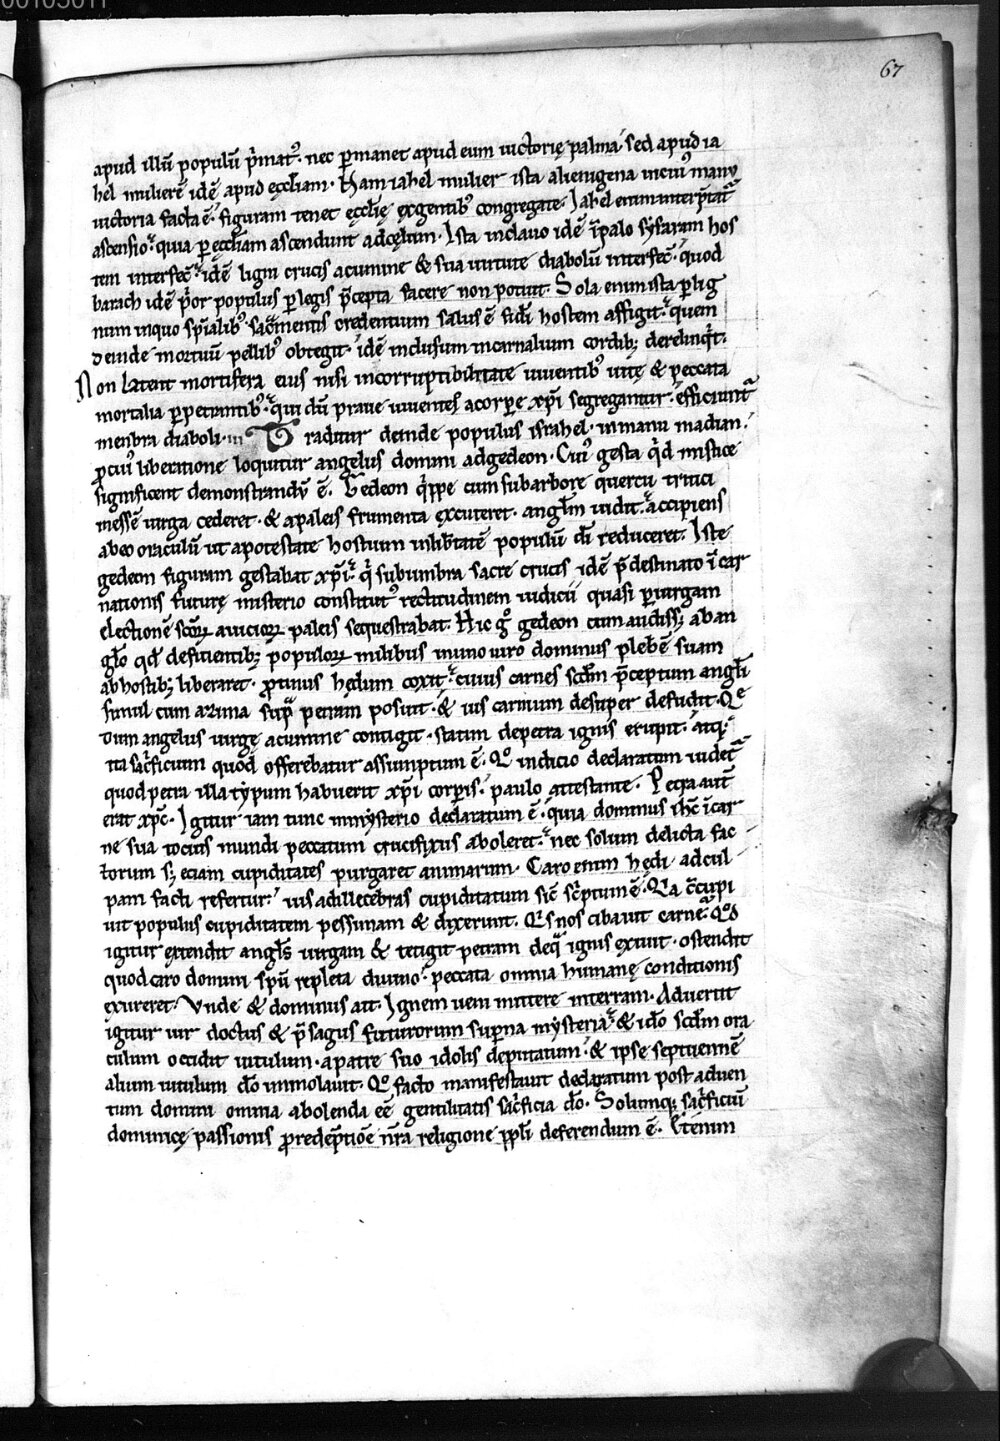 00105011
67
apud illũ populũ p̃mat᷒. nec ꝑmanet apud eum uictorię palma sed apud ia
hel mulierẽ idẽ apud ęccł̃iam. Nam iahel mulier ista alienigena in cui᷒ manu
uictoria facta ẽ. figuram tenet ęccł̃ię exgentib᷒ congregate. Iahel enim interp̃tat᷑
ascensio. quia ꝑ ęccł̃iam ascendunt ad cęlum. Ista in clauo idẽ ĩ palo sysaram hos
tem interfec̃. idẽ ligni crucis acumine & sua uirtute diabolũ interfec̃. quod
barach idẽ p̃or populus ꝑ legis p̃cepta facere non potuit. Sola enim ista ꝑ lig
num inquo sp̃ialib᷒ sac̃mentis credentium salus ẽ fidei hostem affigit. quem
deinde mortuũ pellib᷒ obtegit. idẽ inclusum incarnalium cordib; derelinq̃t.
Non latent mortifera eius nisi incorruptibilitate uiuentib᷒ uitę & peccata
mortalia ꝑpetrantib᷒. qui dũ praue uiuentes a corpore xp̃i segregantur. efficiunt᷑
menbra diaboli. Traditur deinde populus israhel. in manu madian.
ꝓ cui᷒ liberatione loquitur angelus domini ad gedeon. Cui᷒ gesta q̃d mistice
significent demonstrandũ ẽ. Gedeon q̃ppe cum subarbore quercu tritici
messẽ uirga cederet. & apaleis frumenta excuteret. angł̃m uidit. accipiens
abeo oraculũ ut apotestate hostium inlib̃tatẽ populũ dĩ reduceret. Iste
gedeon figuram gestabat xp̃i. q̃ subumbra sacre crucis idẽ p̃destinato ĩcar
nationis future misterio constitut᷒ rectitudinem iudicii quasi ꝑ uirgam
electionẽ sc̃oꝝ a uicioꝝ paleis sequestrabat. Hic g̊ gedeon cum audiss; ab an
gł̃o qd̃ deficientib; populoꝝ milibus inuno uiro dominus plebẽ suam
ab hostib; liberaret. ꝓtinus hędum coxit. cuius carnes scd̃m p̃ceptum angł̃i
simul cum azima sup̃ petram posuit. & ius carnium desuper defudit. Qe
dum angelus uirgę acumine contigit. statim depetra ignis erupit. atq;
ita sac̃ficium quod offerebatur assumptum ẽ. Qo indicio declaratum uidet᷑
quod petra illa typum habuerit xp̃i corꝑis. paulo attestante. Petra aut̃
erat xp̃c. Igitur iam tunc mnysterio declaratum ẽ. quia dominus ih̃c ĩcar
ne sua tocius mundi peccatum crucifixus aboleret. nec solum delicta fac
torum s; eciam cupiditates purgaret animarum. Caro enim hędi ad cul
pam facti refertur. ius ad illecebras cupiditatum sic̃ sc̃ptum ẽ. Qa c̃cupi
uit populus cupiditatem pessimam & dixerunt. Qis nos cibauit carne. Qod
igitur extendit angł̃s uirgam & tetigit petram deq̃ ignis exiuit. ostendit
quod caro domini sp̃u repleta diuino. peccata omnia humanę conditionis
exureret. Vnde & dominus ait. Ignem ueni mittere interram. Aduertit
igitur uir doctus & p̃sagus futurorum superna mysteria. & ido scd̃m ora
culum occidit uitulum. apatre suo idolis deputatum. & ipse septuennẽ
alium uitulum dõ immolauit. Qo facto manifestauit declaratum post aduen
tum domini omnia abolenda eẽ gentilitatis sac̃ficia dõ. Solumq; sac̃ficiũ
dominicę passionis ꝓ redẽptiõe nr̃a religione ppł̃i deferendum ẽ. Etenim